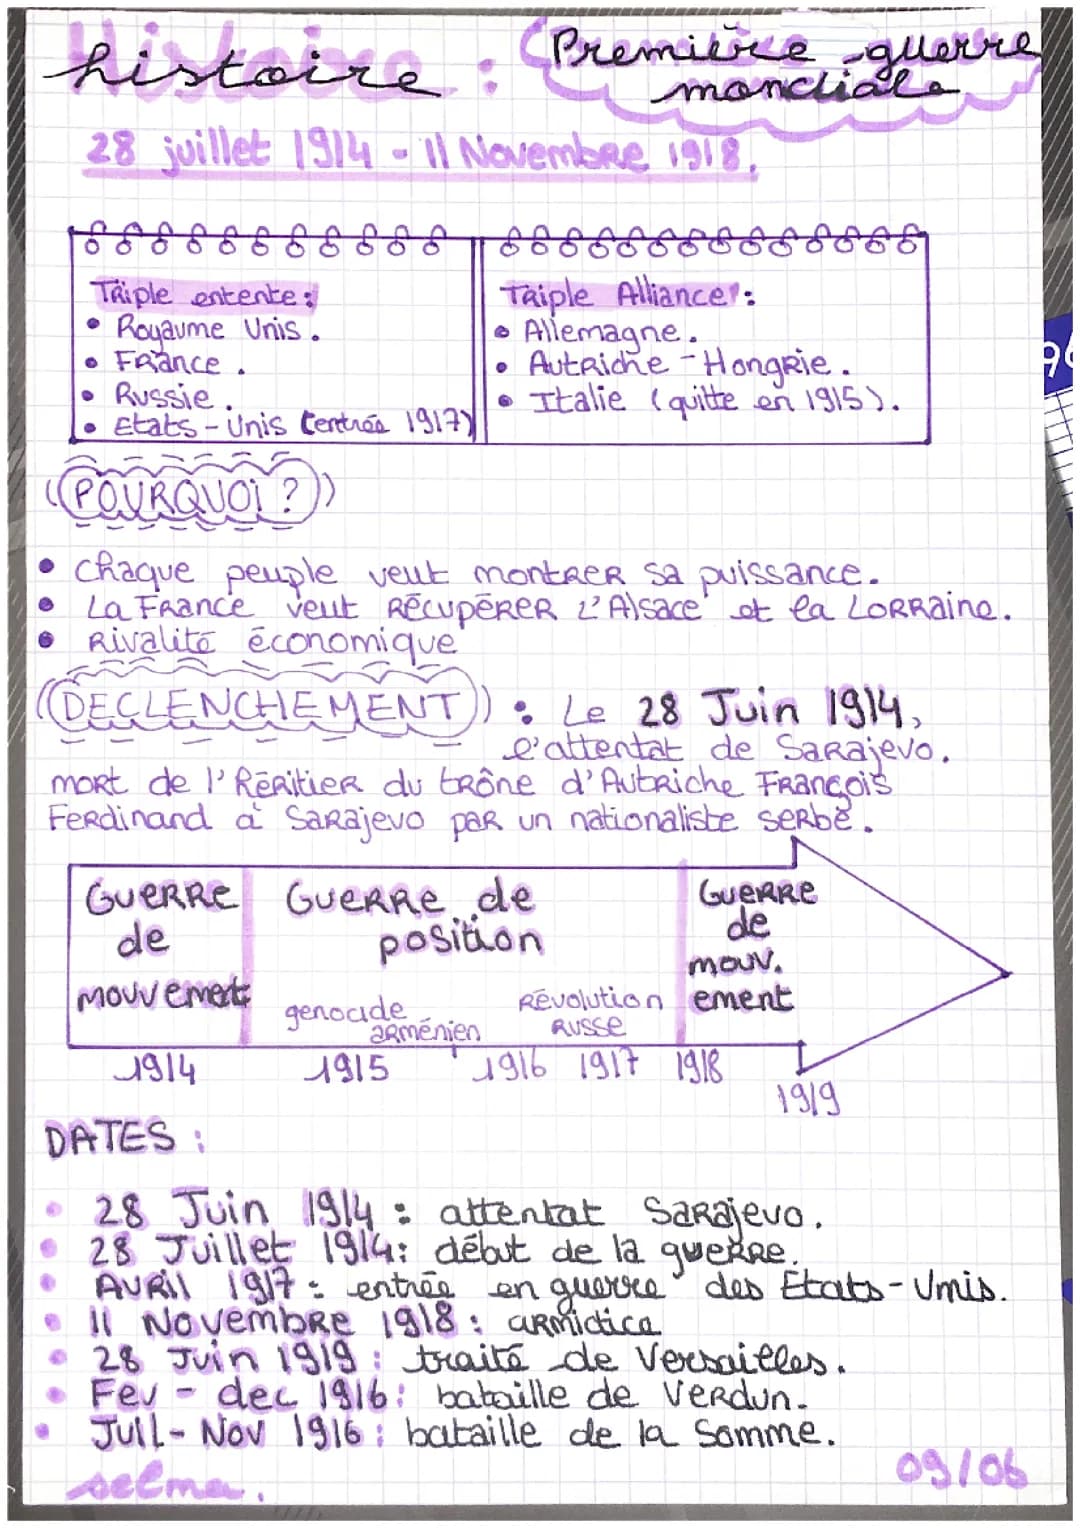 histoire : Première guerre
mondiale
28 juillet 1914 - 11 Novembre 1918.
Triple entente :
• Royaume Unis.
• France.
• Russie.
• Etats-Unis (entrée 1917)
Triple Alliance :
• Allemagne.
• Autriche - Hongrie.
• Italie (quitte en 1915).
((POURQUOI ?))
• chaque peuple veut montrer sa puissance.
• La France veut récupérer l'Alsace et la Lorraine.
• Rivalité économique
((DECLENCHEMENT)) : Le 28 Juin 1914,
l'attentat de Sarajevo.
mort de l'Réritier du trône d'Autriche François
Ferdinand à Sarajevo par un nationaliste serbe.
Guerre
de
mouvement
Guerre de
position
genocide
arménien
Révolution
Russe
Guerre
de
mouv.
ement
1914 1915 1916 1917 1918
1919
DATES :
• 28 Juin 1914 : attentat Sarajevo.
• 28 Juillet 1914 : début de la guerre.
• Avril 1917 : entrée en guerre des Etats-Unis.
• 11 Novembre 1918 : armictice
• 28 Juin 1919 : traité de Versailles.
• Fev - dec 1916 : bataille de Verdun.
• Juil - Nov 1916 : bataille de la Somme.
selma.
09/06